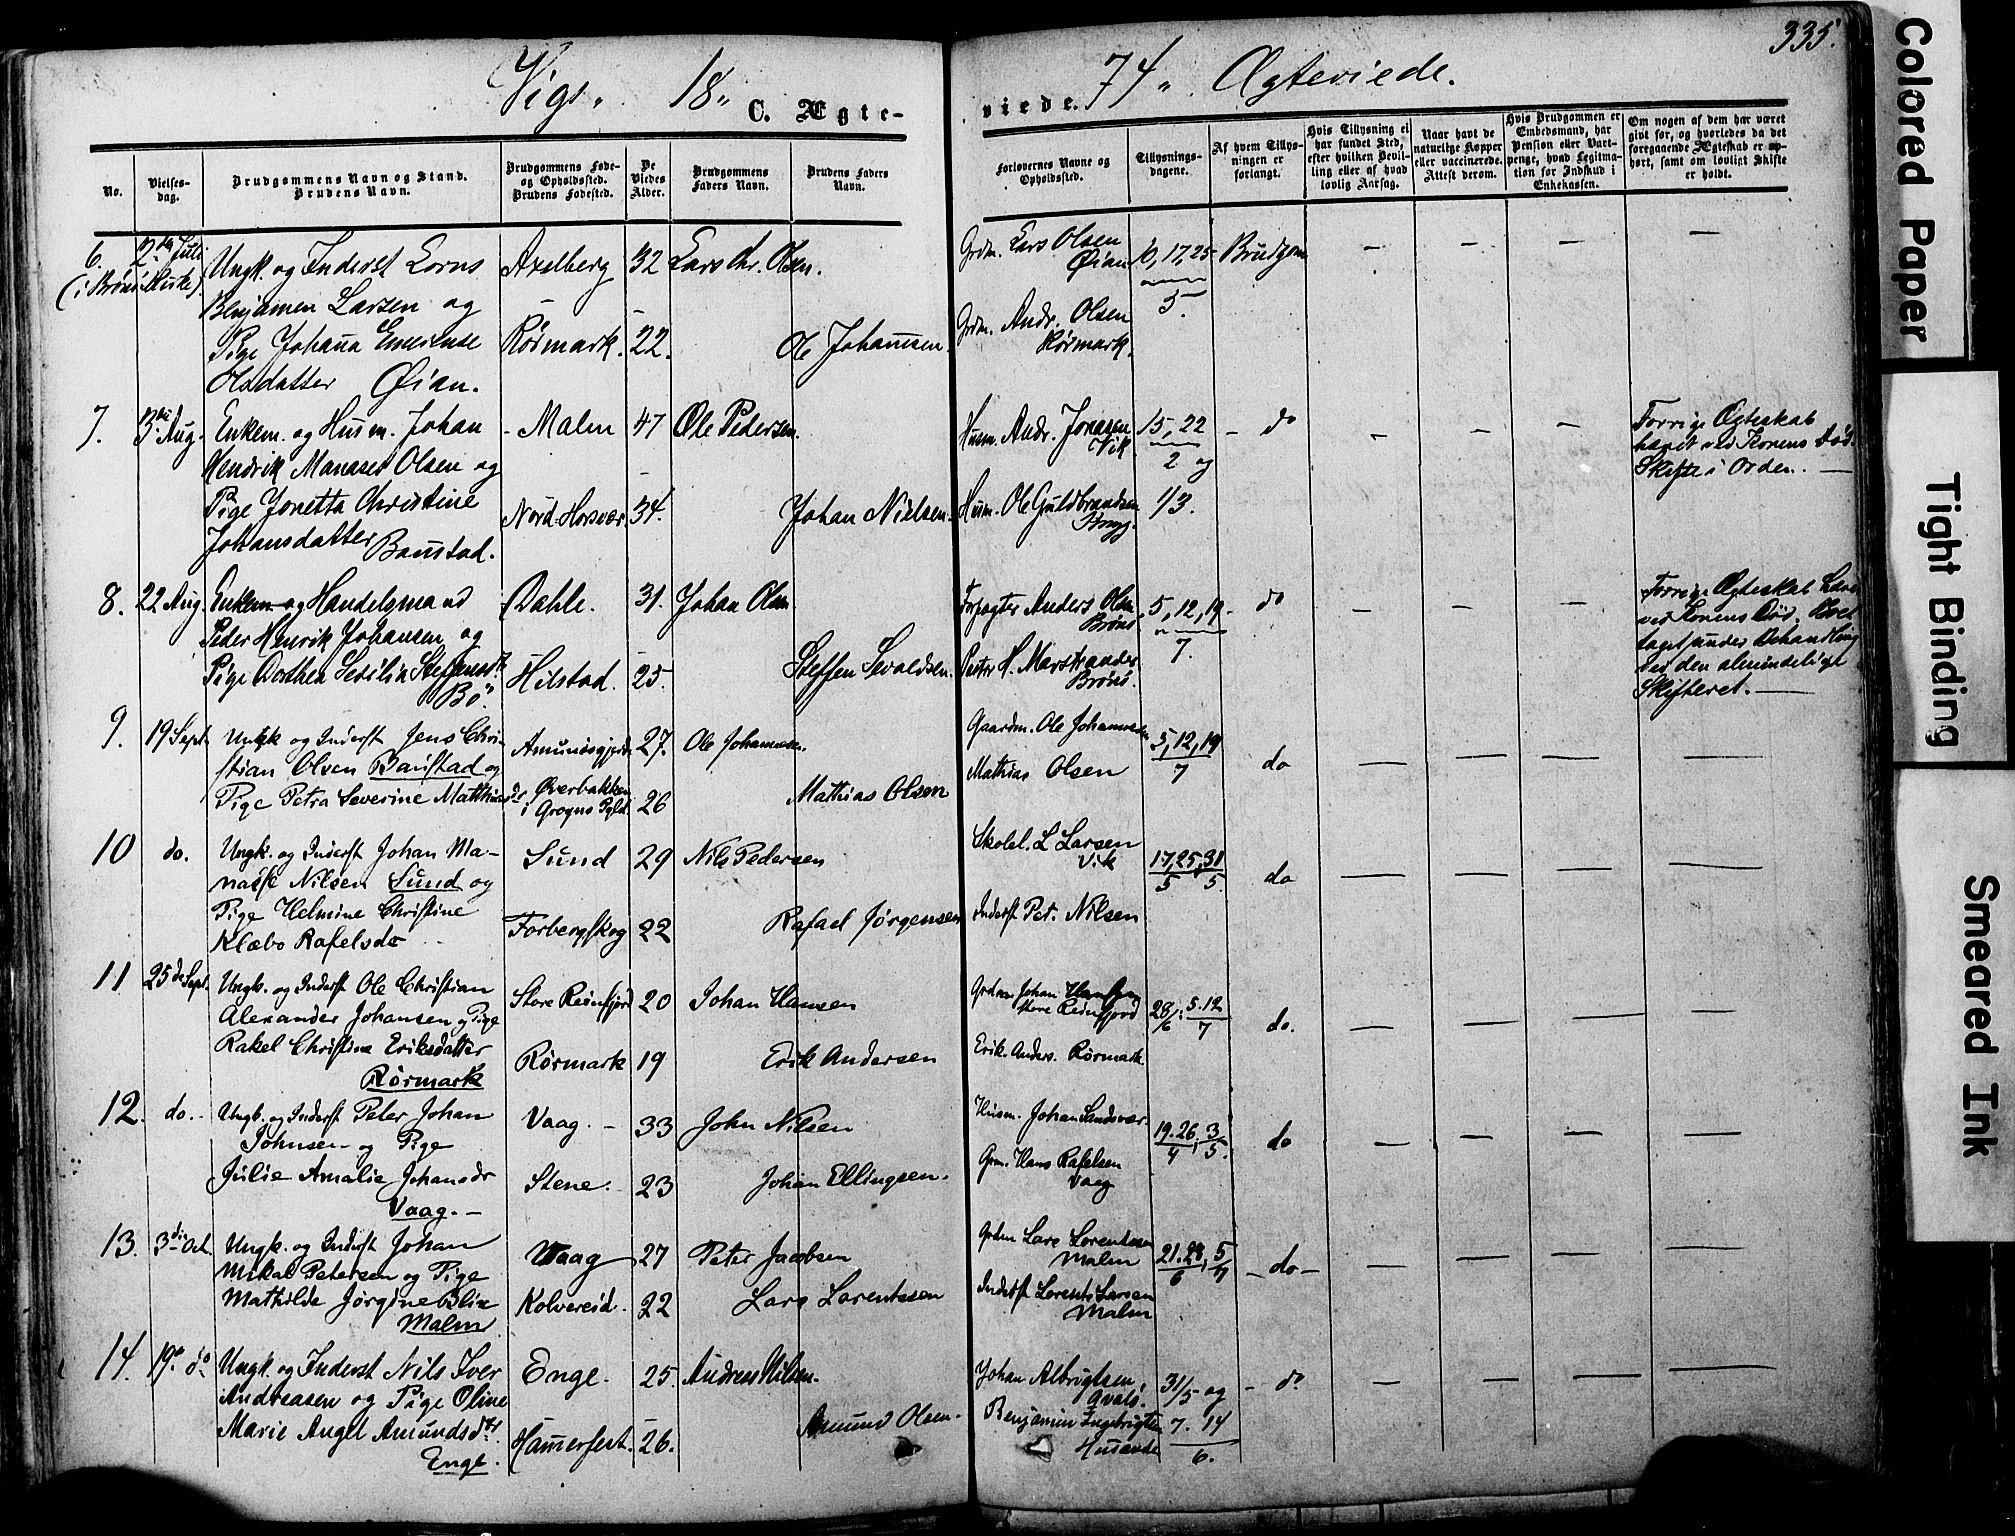 335.
Vigs. 18" C. Ægte-
viede. 74" Ægteviede.
No.
Vielses-
dag.
Brudgommens Navn og Stand.
Brudens Navn.
Brudgommens Føde-
og Opholdssted.
Brudens Fødested.
De
Viedes
Alder.
Brudgommens
Faders Navn.
Brudens Faders
Navn.
Forlovernes Navne og
Opholdssted.
Tillysnings-
dagene.
Af hvem Tillys-
ningen er
forlangt.
Hvis Tillysning ei
har fundet Sted,
efter hvilken Bevil-
ling eller af hvad
lovlig Aarsag.
Naar havt de
naturlige Kopper
eller vaccinerede.
Attest derom.
Hvis Brudgommen er
Embedsmand, har
Pension eller Vart-
penge, hvad Legitima-
tion for Indskud i
Enkekassen.
Om nogen af dem har været
givt før, og hvorledes da det
foregaaende Ægteskab er op-
hørt, samt om lovligt Skifte
er holdt.
6. 12te Julli
(i Brønø Kirke)
Ungk. og Inderst Lorns
Benjamen Larsen og
Pige Johana Ernestine
Olsdatter Øian.
Axelberg 32 Lars Chr. Olsen.
Rørmark. 22. Ole Johannsen.
Grdm. Lars Olsen
Øian
Grdm. Andr. Olsen
Rørmark.
10, 17, 25
5.
Brudgom — — — —
7. 13de Aug.
Enkem. og Husm. Johan
Hendrik Manases Olsen og
Pige Jonetta Christine
Johansdatter Baustad.
- Malm 47 Ole Pedersen.
Nord-Horsvær 34. Johan Nielsen.
Husm. Andr. Jonasen
Vik.
Husm. Ole Guldbrandsen
15, 22
2 og
1/3.
- do — — —
Forrige Ægteskab
hævet ved Konens Død
Skifte i Orden. —
8. 22 Aug.
Enkem og Handelsmand
Peder Henrik Johansen og
Pige Dorthea Sedilia Steffensdr.
Bø.
Dahle. 31. Johan Olsen
Hilstad. 25. Steffen Sevaldsen.
Forpagter Anders Olsen
Brønø.
Peder H. Marstrander
Brønø.
5, 12, 19
7.
do — — —
Forrige Ægteskab hævet
ved Konens Død. Boet
taget under Behandling
ved den almindelige
Skifteret. —
9. 19 Sept.
Ungk og Inderst Jens Chri-
stian Olsen Baustad og
Pige Petra Severine Mathiasdr
Amundsgjerde 27. Ole Johannsen.
Øverbakken
i Grognes Pgld. 26 Mathias Olsen
Gaardm. Ole Johannesen
Mathias Olsen
5, 12, 19
7
do — — — —
10 do.
Ungk. og Inderst Johan Ma-
nasse Nilsen Sund og
Pige Helmine Christine
Klæbo Rafelsdr
Sund 29 Nils Pedersen
Forbergskog 22 Rafael Jørgensen
Skolel. L Larsen
Vik
Inderst Pet. Nilsen
17, 25, 31
5 5.
do — — — —
11 25de Sept.
Ungk. og Inderst Ole Christian
Alexander Johansen og Pige
Rakel Christine Eriksdatter
Rørmark
Store Reinfjord 20 Johan Hansen
Rørmark 19 Erik Andersen
Grdm Johan Hansen
Store Reinfjord
Erik. Anders. Rørmark
28/6; 5.12
7
do. — — — —
12. do.-
Ungk. og Inderst Peter Johan
Johnsen og Pige
Julie Amalie Johansdr
Vaag. -
Vaag. - 33 John Nilsen
Stene. - 23 Johan Ellingsen.
Husm. Johan Sandsvær.
Grm. Hans Rafelsen
Vaag
19. 26, 3
4 5.
do — — — —
13. 3die Oct.
Ungk. og Inderst Johan
Mikal Petersen og Pige
Mathilde Jørgine Blix
Malm
Vaag 27 Peter Jacobsen
Kolvereid. 22 Lars Lorentssen
Grdm Lars Lorentssen
Malm
Inderst Lorents Larsen
Malm
21. 28, 5
6 7
- do - — — — —
14. 19de do.
Ungk. og Inderst Nils Iver
Andreasen og Pige Oline
Marie Angel Amundsdtr
Enge.
Enge. 25. Andreas Nilsen.
Hamerfest. 26. Amund Olsen.
Johan Albrigtsen,
Benjamin Ingebrigtsen
31/5 og
7. 14
6.
- do. — — — —
Colored Paper
Tight Binding
Smeared Ink